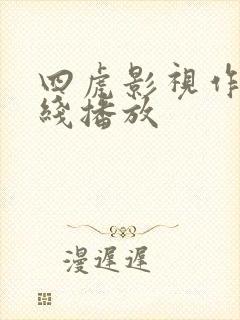 四虎影視作
綫播放
漫遲遲